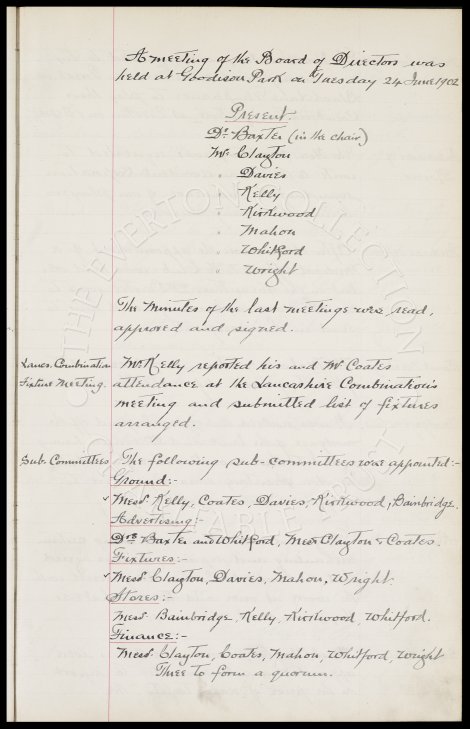 A meeting of the Board of Directors was
held at Goodison Park on Tuesday 24 June 1902
Present.
Dr. Baxter (in the chair)
Mr. Clayton
" Davies
" Kelly
" Kirkwood
" Mahon
" Whitford
" Wright
The Minutes of the last meetings were read,
approved and signed.
Lancs. Combination
Fixture Meeting.
Mr Kelly reported his and Mr Coates
attendance at the Lancashire Combination's
meeting and submitted list of fixtures
arranged.
Sub-Committees
The following sub-committees were appointed:-
Ground:-
✓ Messrs Kelly, Coates, Davies, Kirkwood, Bainbridge.
Advertising:-
Drs Baxter and Whitford, Messrs Clayton & Coates.
Fixtures:-
✓ Messrs Clayton, Davies, Mahon, Wright
Stores:-
Messrs Bainbridge, Kelly, Kirkwood, Whitford.
Finance:-
Messrs Clayton, Coates, Mahon, Whitford, Wright
Three to form a quorum.
THE EVERTON COLLECTION
CHARITABLE TRUST